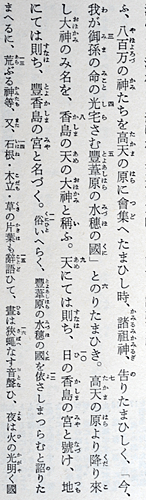 ふ、八百万の神たちを高天の原に會集へたまひし時、諸祖神、告りたまひしく、「今、
我が御孫の命の光宅さむ豐葦原の水穂の國」とのりたまひき。高天の原より降り來
し大神のみ名を、香島の天の大神と稱ふ。天にては則ち、日の香島の宮と號け、地
にては則ち、豐香島の宮と名づく。俗いへらく、豐葦原の水穂の國を依さしまつらむと詔りた
まへるに、荒ぶる神等、又、石根・木立・草の片葉も辭語ひて、晝は狹蠅なす音聲ひ、夜は火の光明く國